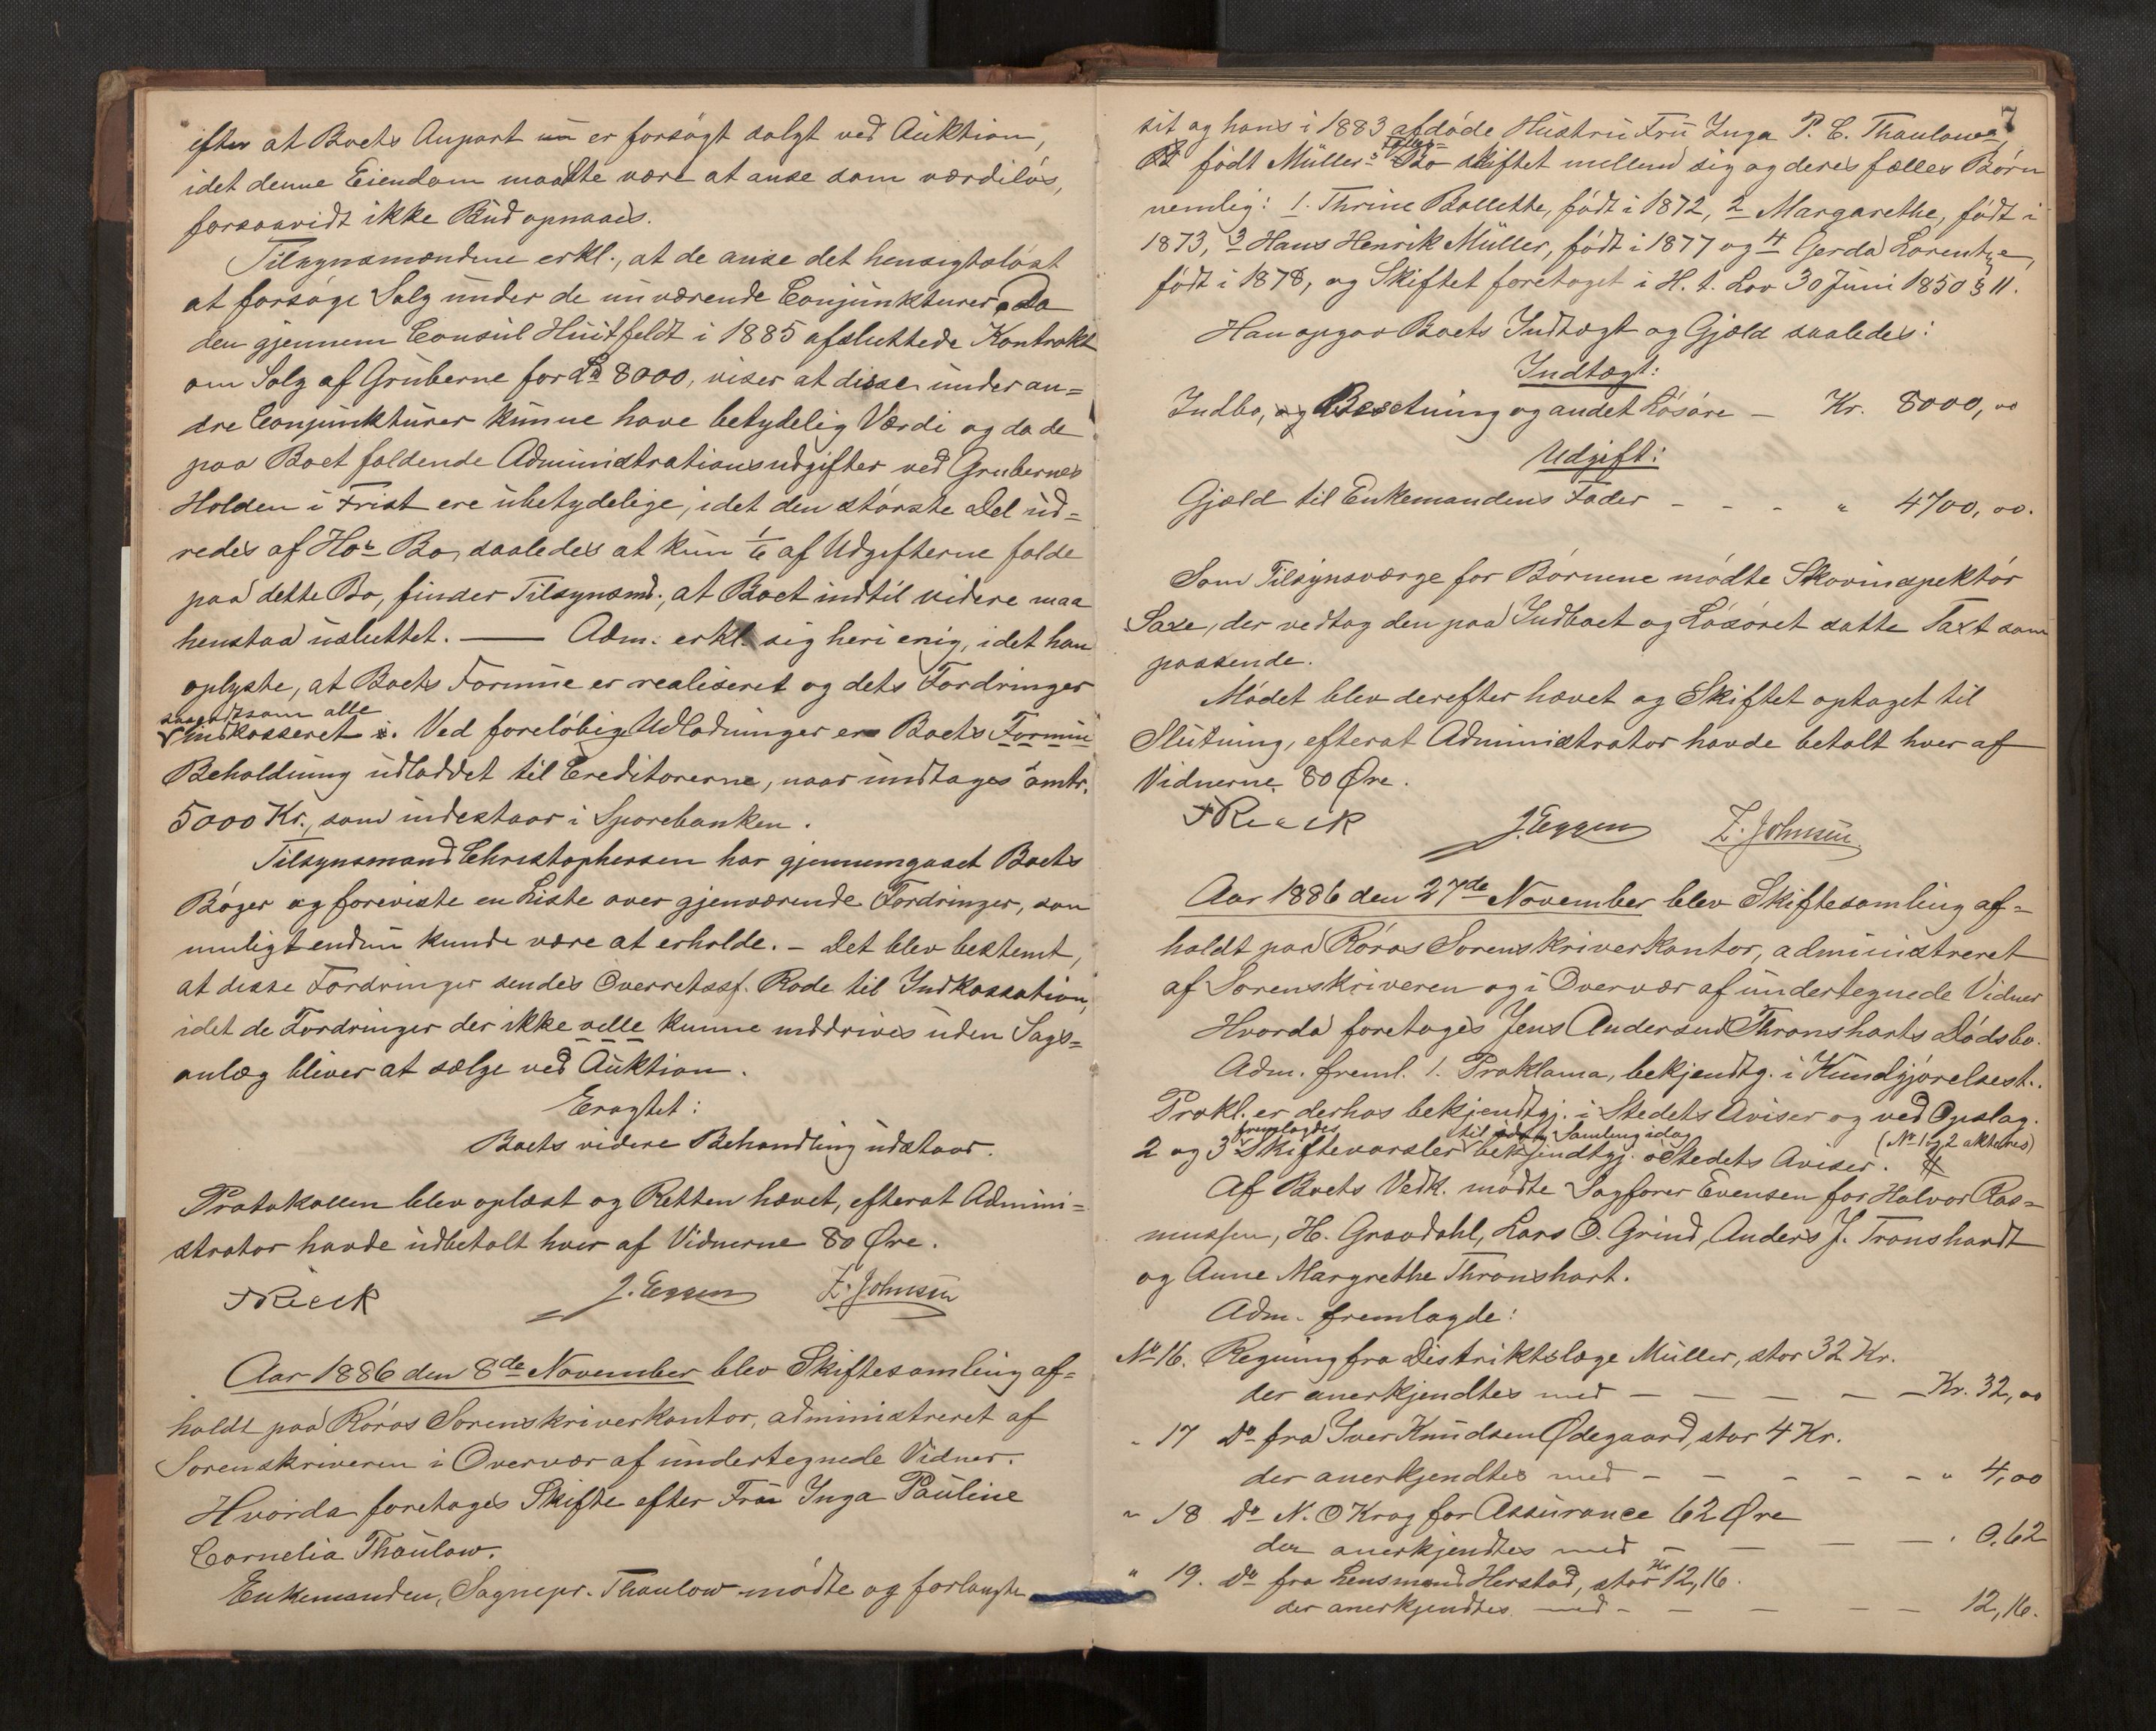 efter at Boets Anpart er forsøgt solgt ved Auktion,
idet denne Eiendom maatte være at anse som værdiløs,
forsaavidt ikke Bud opnaaes.
Tilsynsmændene erkl., at de anse det hensigtsløst
at forsøge Salg under de nuværende Conjunkturer. Da
den gjennem Consul Huitfeldt i 1885 afsluttede Kontrakt
om Salg af Gruberne for L 8000, viser at disse under an=
dre Conjunkturer kunne have betydelig Værdi og da de
paa Boet faldende Administrationsudgifter ved Grubernes
Holden i Frist ere ubetydelige, idet den største Del ud=
redes af Bo, saaledes at kun 1/6 af Udgifterne falde
paa dette Bo, finder Tilsynsmd., at Boet indtil videre maa
henstaa usluttet. — Adm. erkl. sig heri enig, idet han
oplyste, at Boets Formue er realiseret og dets Fordringer
saagodtsom alle
indkasseret. Ved foreløbige Udlodninger er Boets Formue
Beholdning udloddet til Creditorerne, naar undtages omtr.
5000 Kr., som indestaar i Sparebanken.
Tilsynsmand Christophersen har gjennemgaaet Boets
Bøger og foreviste en Liste over gjenværende Fordringer, som
muligt endnu kunde være at erholde. – Det blev bestemt,
at disse Fordringer sendes Overretssf. Rode til Indkassation,
idet de Fordringer der ikke velle kunne inddrives uden Sags=
anlæg bliver at sælge ved Auktion.
Eragtet:
Boets videre Behandling udstaar.
Protokollen blev oplæst og Retten hævet, efterat Admini=
strator havde udbetalt hver af Vidnerne 80 Øre.
F Rieck J. Eggen Z. Johnsen
Aar 1886 den 8de November blev Skiftesamling af=
holdt paa Røros Sorenskriverkontor, administreret af
Sorenskriveren i Overvær af undertegnede Vidner.
Hvorda foretoges Skifte efter Fru Inga Pauline
Cornelia Thaulow.
Enkemanden, Sognepr. Thaulow mødte og forlangte
7
sit og hans i 1883 afdøde Hustru Fru Inga P. C. Thaulows,
Fælles=
født Müllers Bo skiftet mellem sig og deres fælles Børn
nemlig: 1. Thrine Bollette, født i 1872, 2 Margarethe, født i
1873, 3 Hans Henrik Müller, født i 1877 og 4 Gerda Lorentze,
født i 1878, og Skiftet foretaget i H. t. Lov 30 Juni 1850 § 11.
Han opgav Boets Indtægt og Gjæld saaledes:
Indtægt:
Indbo, og Besetning og andet Løsøre – Kr. 8000,00
Udgift:
Gjæld til Enkemandens Fader – – – " 4700,00.
Som Tilsynsværge for Børnene mødte Skovinspektør
Saxe, der vedtog den paa Indboet og Løsøret satte Taxt som
passende.
Mødet blev derefter hævet og Skiftet optaget til
Slutning, efterat Administrator havde betalt hver af
Vidnerne 80 Øre.
F Rieck J. Eggen Z. Johnsen
Aar 1886 den 27de November blev Skiftesamling af=
holdt paa Røros Sorenskriverkontor, administreret
af Sorenskriveren og i Overvær af undertegnede Vidner
Hvorda foretoges Jens Andersen Thronsharts Dødsbo.
Adm. freml. 1. Proklama, bekjendtg. i Kundgjørelsest..
Prokl. er derhos bekjendtgj. i Stedets Aviser og ved Opslag.
fremlagdes til Samling idag (No 1 og 2 aktenes)
2 og 3 Skiftevarsler bekjendtgj. i Stedets Aviser.
Af Boets Vedk. mødte Sagfører Evensen for Halvor Ras=
mussen, H. Graadahl, Lars O. Grind, Anders J. Tronshardt
og Anne Margrethe Thronshart.
Adm. fremlagde:
No 16. Regning fra Distriktslæge Müller, stor 32 Kr.
der anerkjendtes med – – – – – Kr. 32,00
" 17 Do fra Iver Knudsen Ødegaard, stor 4 Kr.
der anerkjendtes med – – – – – " 4,00
" 18 Do N. O Krog for Assurance 62 Øre
der anerkjendtes med – – – – " 0,62
" 19. Do fra Lensmand Herstad, stor Kr 12,16.
der anerkjendtes med – – – – – 12,16.